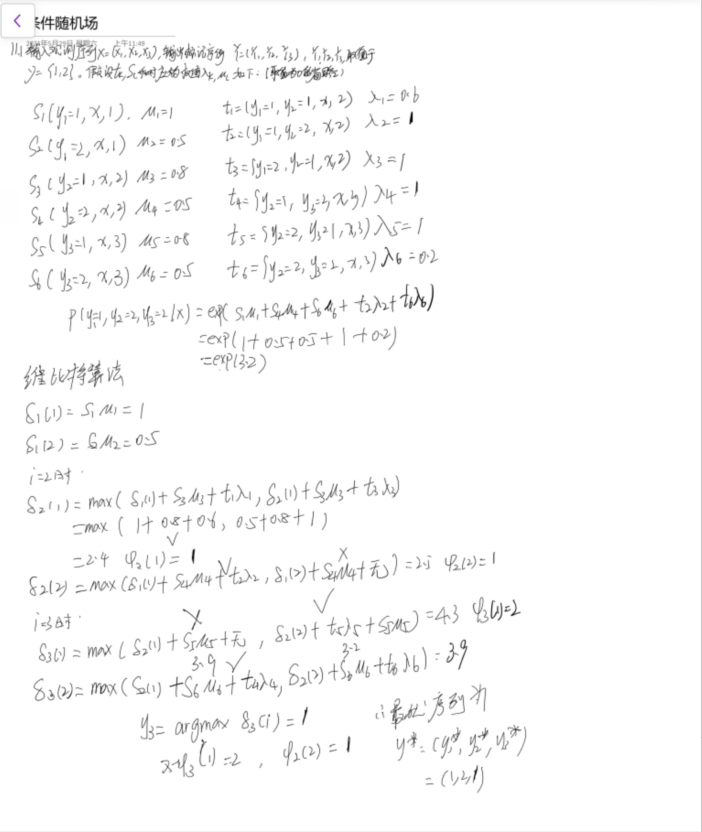 条件随机场
上午11:49
11.1 输入观测序列X=(x₁,x₂,x₃), 输出标记序列 Y=(Y₁,Y₂,Y₃), Y₁,Y₂,Y₃取值于
y={1,2}.
S₁(y₁=1,x,1). μ₁=1 t₁=(y₁=1,y₂=1,x,2) λ₁=0.6
S₂(y₁=2,x,1) μ₂=0.5 t₂=(y₁=1,y₂=2,x,2) λ₂=1
S₃(y₂=1,x,2) μ₃=0.8 t₃={y₁=2,y₂=1,x,2) λ₃=1
S₄(y₂=2,x,2) μ₄=0.5 t₄={y₂=1,y₃=2,x,3) λ₄=1
S₅(y₃=1,x,3) μ₅=0.8 t₅={y₂=2,y₃=1,x,3) λ₅=1
S₆(y₃=2,x,3) μ₆=0.5 t₆={y₂=2,y₃=2,x,3) λ₆=0.2
P(y₁=1,y₂=2,y₃=2|x)=exp(S₁μ₁+S₄μ₄+S₆μ₆+t₂λ₂+t₆λ₆)
=exp(1+0.5+0.5+1+0.2)
=exp(3.2)
维比特算法
δ₁(1)=S₁μ₁=1
δ₁(2)=S₂μ₂=0.5
i=2时.
δ₂(1)=max(δ₁(1)+S₃μ₃+t₁λ₁,δ₂(1)+S₃μ₃+t₃λ₃)
=max(1+0.8+0.6,0.5+0.8+1)
=2.4 φ₂(1)=1
δ₂(2)=max(δ₁(1)+S₄μ₄+t₂λ₂,δ₁(2)+S₄μ₄+无)=2.5 φ₂(2)=1
i=3时.
δ₃(1)=max(δ₂(1)+S₅μ₅+无,δ₂(2)+t₅λ₅+S₅μ₅)=4.3 φ₃(1)=2
3.9 3.2
δ₃(2)=max(δ₂(1)+S₆μ₆+t₄λ₄,δ₂(2)+S₆μ₆+t₆λ₆)=3.9
y₃=argmax δ₃(i)=1
φ₃(1)=2, φ₂(2)=1
∴最优序列为
y*=(y₁*,y₂*,y₃*)
=(1,2,1)